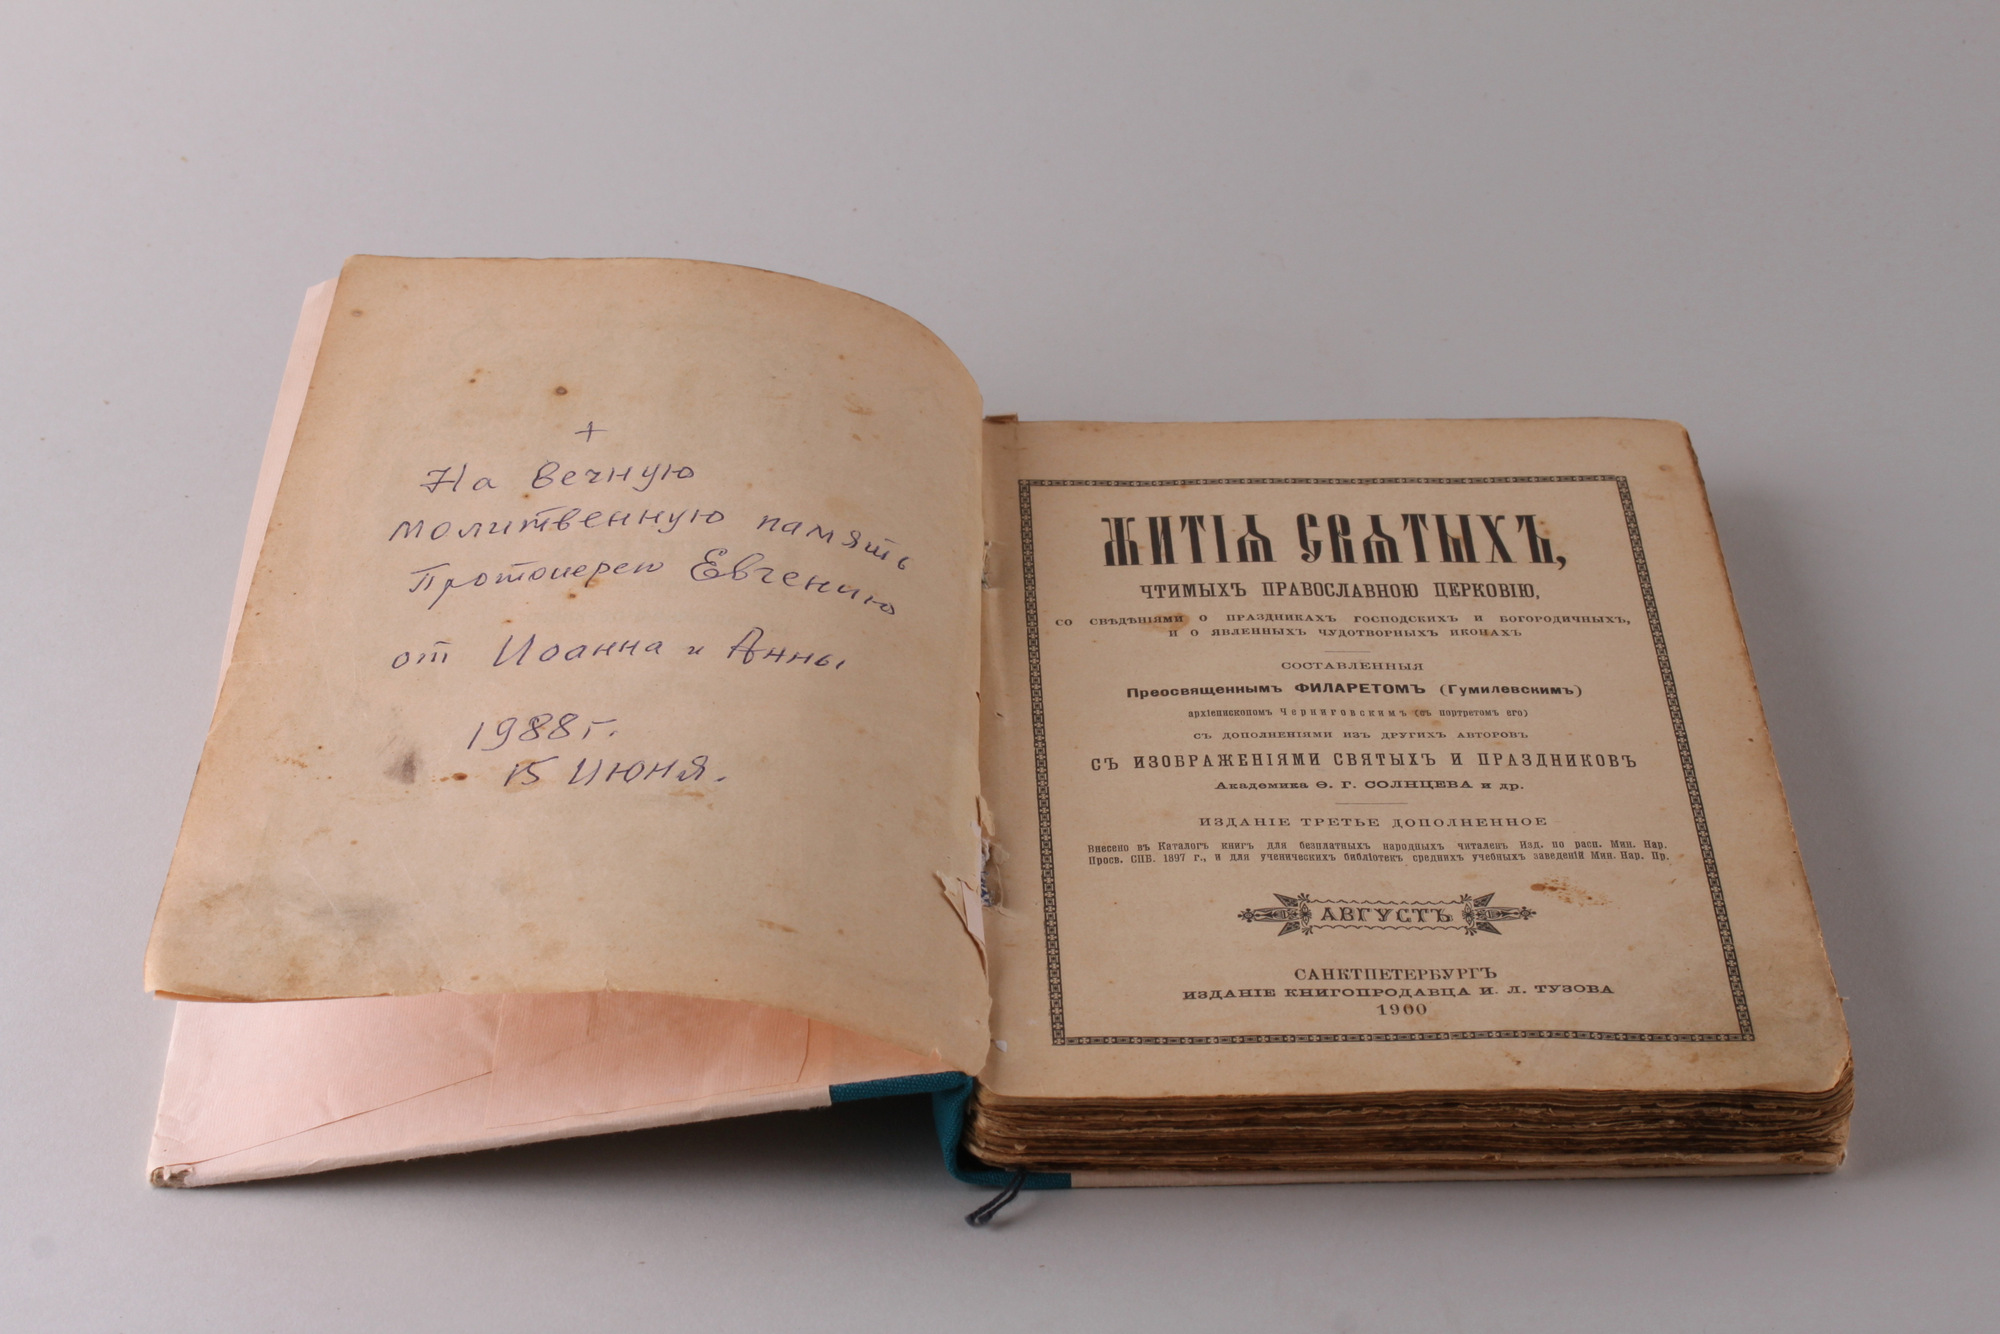 +
На вечную
молитвенную память
Протоиерею Евгению
от Иоанна и Анны
1988 г.
15 Июня.
ЖИТІѦ СВѦТЫХЪ,
ЧТИМЫХЪ ПРАВОСЛАВНОЮ ЦЕРКОВІЮ,
СО СВѢДѢНІЯМИ О ПРАЗДНИКАХЪ ГОСПОДСКИХЪ И БОГОРОДИЧНЫХЪ,
И О ЯВЛЕННЫХЪ ЧУДОТВОРНЫХЪ ИКОНАХЪ
СОСТАВЛЕННЫЯ
Преосвященнымъ ФИЛАРЕТОМЪ (Гумилевскимъ)
архіепископомъ Черниговскимъ (съ портретомъ его)
СЪ ДОПОЛНЕНІЯМИ ИЗЪ ДРУГИХЪ АВТОРОВЪ
СЪ ИЗОБРАЖЕНІЯМИ СВЯТЫХЪ И ПРАЗДНИКОВЪ
Академика Ѳ. Г. СОЛНЦЕВА и др.
ИЗДАНІЕ ТРЕТЬЕ ДОПОЛНЕННОЕ
Внесено въ Каталогъ книгъ для безплатныхъ народныхъ читаленъ Изд. по расп. Мин. Нар.
Просв. СПБ. 1897 г., и для ученическихъ библіотекъ среднихъ учебныхъ заведеній Мин. Нар. Пр.
АВГУСТЪ
САНКТПЕТЕРБУРГЪ
ИЗДАНІЕ КНИГОПРОДАВЦА И. Л. ТУЗОВА
1900